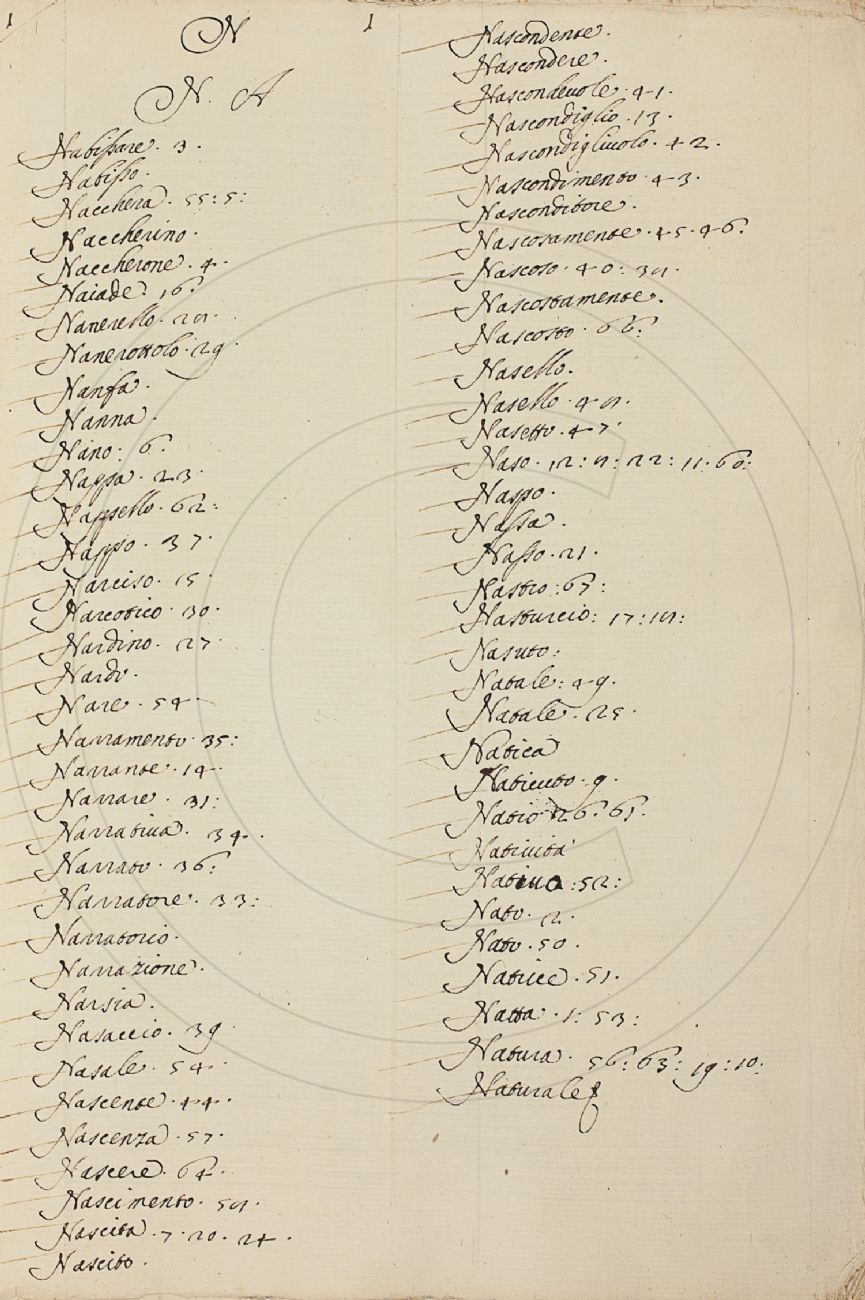 1
N
N. A
Nabissare. 3.
Nabisso.
Nacchera. 55:5:
Naccherino.
Naccherone. 4.
Naiade. 16:
Nanerello. 28.
Nanerottolo. 29.
Nanfa.
Nanna.
Nano: 6.
Nappa. 23.
Nappello. 62:
Nappo. 37.
Narciso. 15.
Narcotico. 30.
Nardino. 27.
Nardo.
Nare. 54.
Narramento. 35:
Narrante. 14.
Narrare. 31:
Narrativa. 34.
Narrato. 36:
Narratore. 33:
Narratorio.
Narrazione.
Narsia.
Nasaccio. 39.
Nasale. 54.
Nascente. 44.
Nascenza. 57.
Nascere. 64.
Nascimento. 58.
Nascita. 7. 20. 24.
Nascito.
1
Nascondente.
Nascondere.
Nascondevole. 41.
Nascondiglio. 13.
Nascondigliuolo. 42.
Nascondimento. 43.
Nasconditore.
Nascosamente. 45. 46.
Nascoso. 40: 38.
Nascostamente.
Nascosto. 66:
Nasello.
Nasello. 48.
Nasetto. 47.
Naso. 12: 8: 22: 11. 60:
Naspo.
Nassa.
Nasso. 21.
Nastro: 67:
Nasturcio: 17: 18:
Nasuto:
Natale: 49.
Natale. 25.
Natica
Naticuto. 9.
Natio 26. 61.
Natività
Nativo: 52:
Nato. 2.
Nato. 50.
Natrice. 51.
Natta. 1: 53:
Natura. 56: 63: 19: 10:
Naturale
C